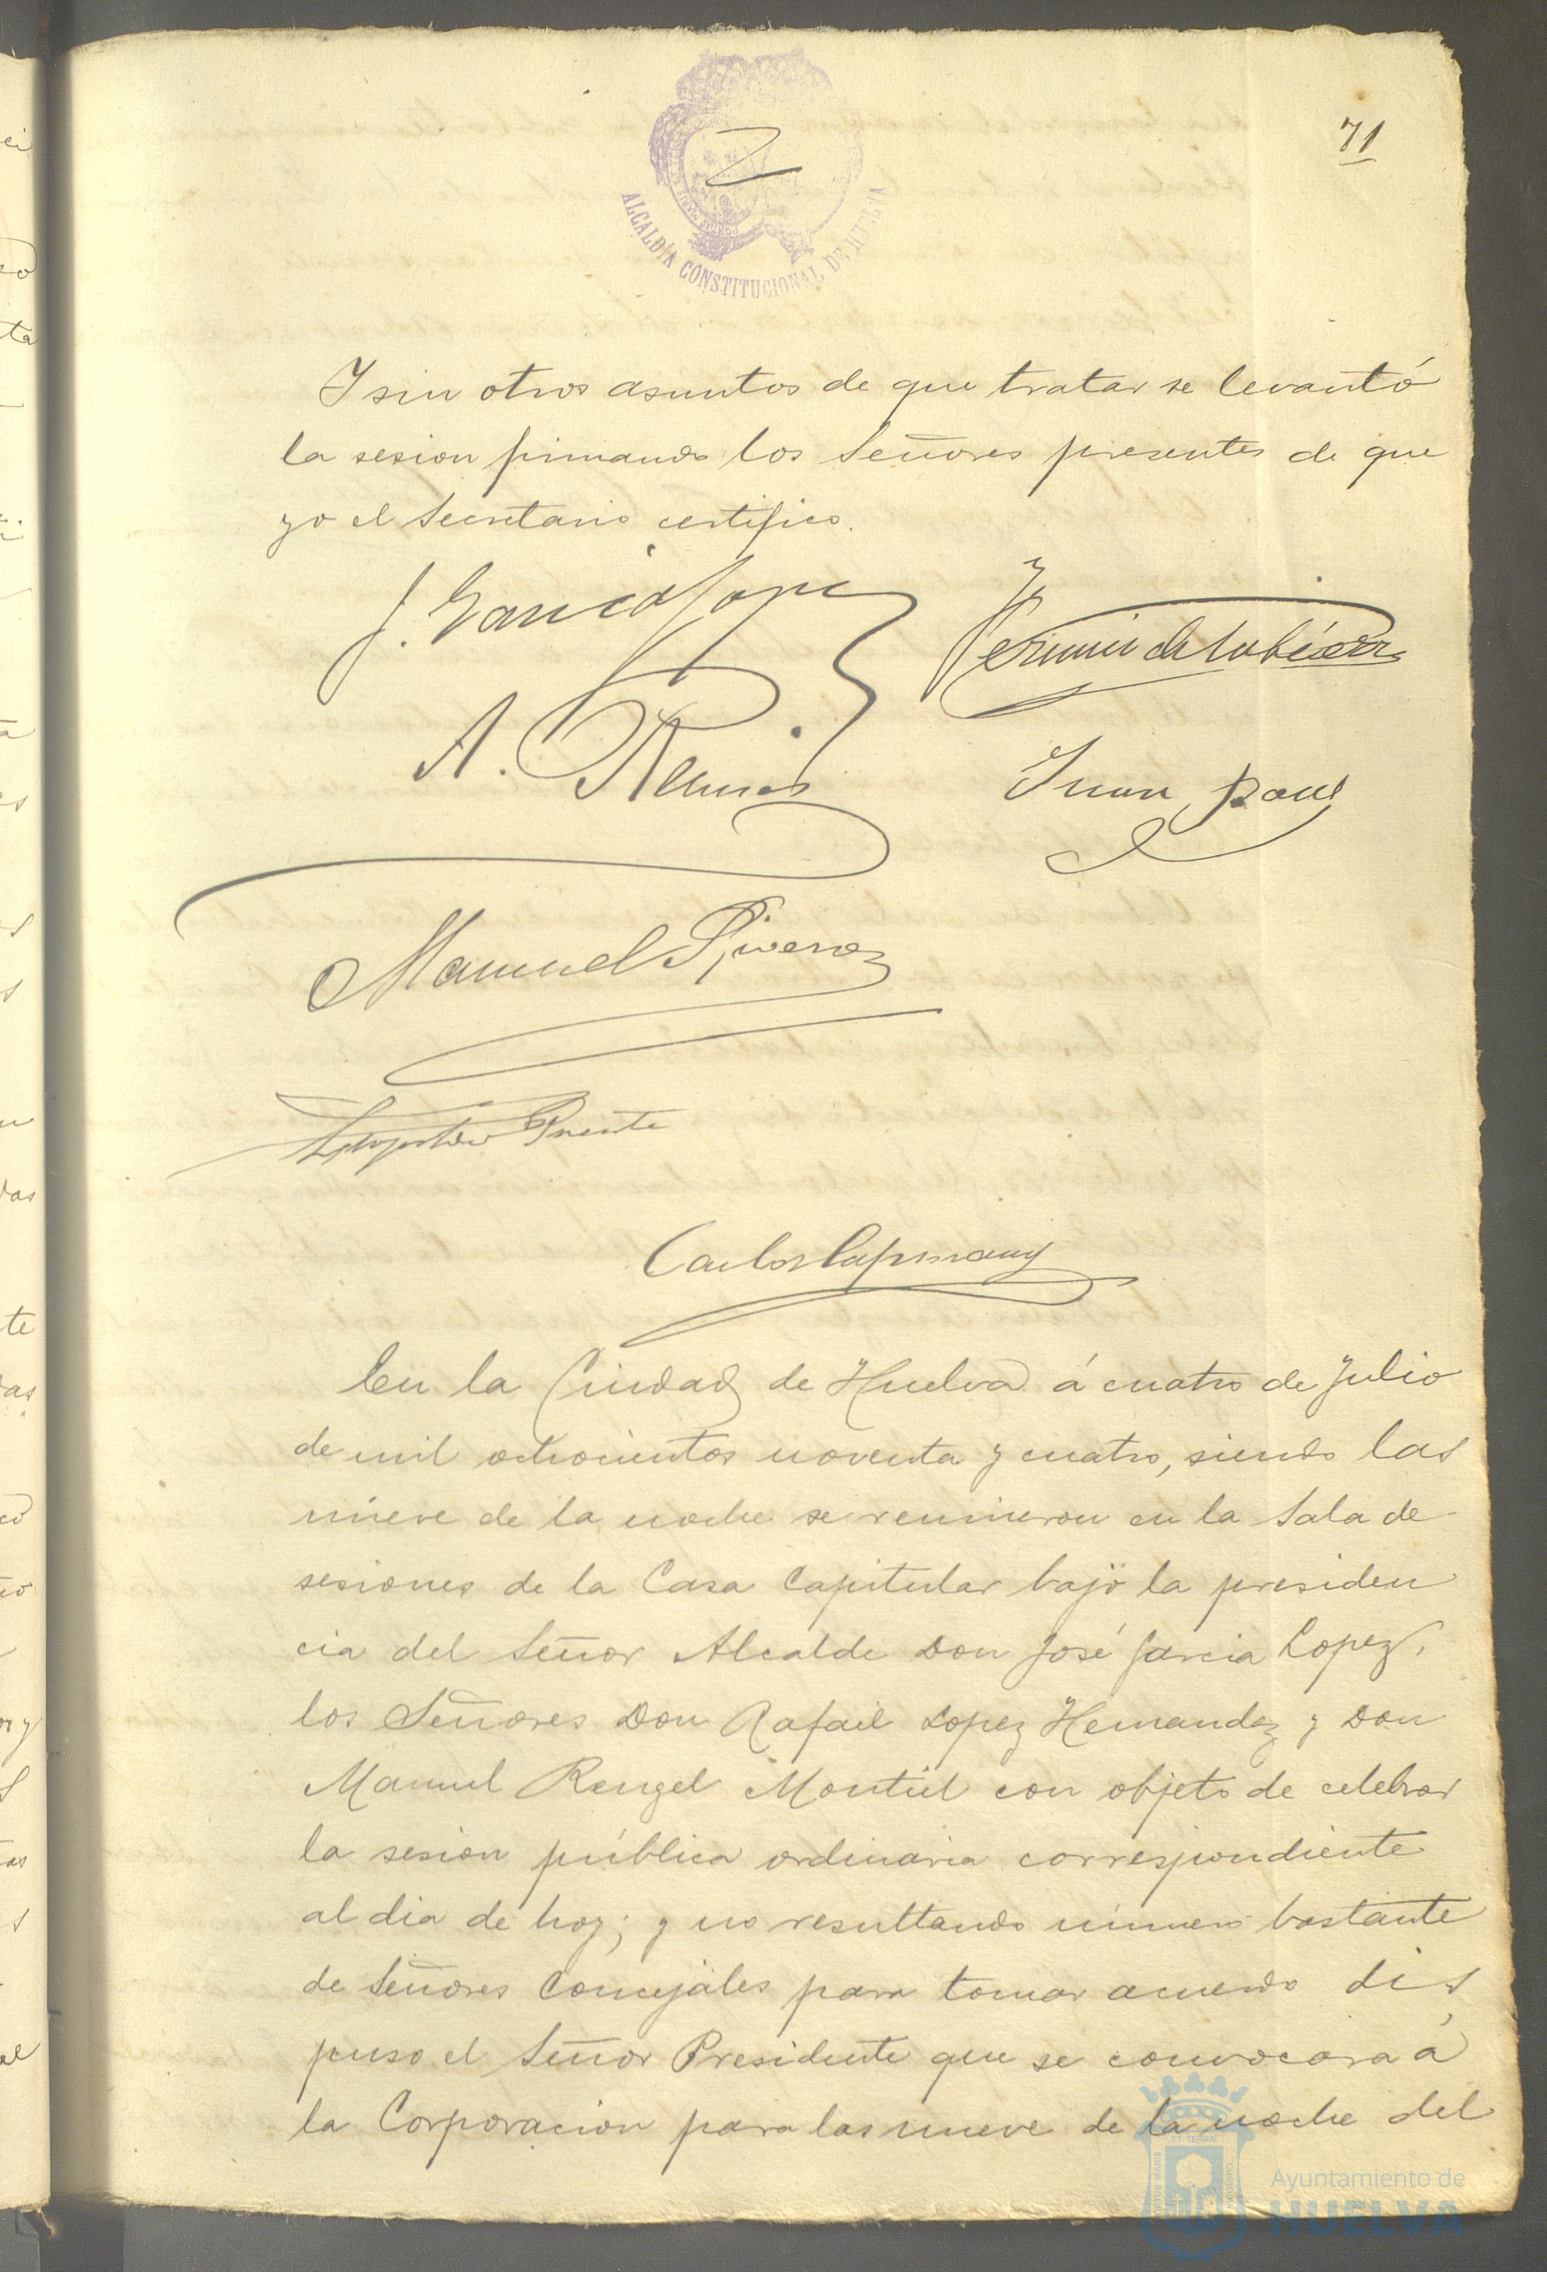 71
ALCALDÍA CONSTITUCIONAL DE HUELVA
Y sin otros asuntos de que tratar se levantó
la sesion firmando los Señores presentes de que
yo el Secretario certifico.
J. Garcia Lopez
A. Ramos
Juan
Manuel Rivero
Puente
Carlos Capmany
En la Ciudad de Huelva á cuatro de Julio
de mil ochocientos noventa y cuatro, siendo las
nueve de la noche se reunieron en la Sala de
sesiones de la Casa Capitular bajo la presiden
cia del Señor Alcalde Don José Garcia Lopez,
los Señores Don Rafael Lopez Hernandez y Don
Manuel Rengel Montiel con objeto de celebrar
la sesion pública ordinaria correspondiente
al dia de hoy; y no resultando número bastante
de Señores Concejales para tomar acuerdo dis
puso el Señor Presidente que se convocára á
la Corporacion para las nueve de la noche del
Ayuntamiento de
HUELVA